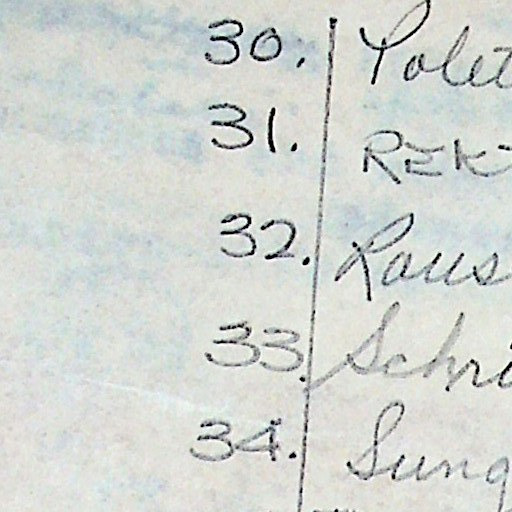 30. Polet
31. REK
32. Raus
33. Schr
34. Sung